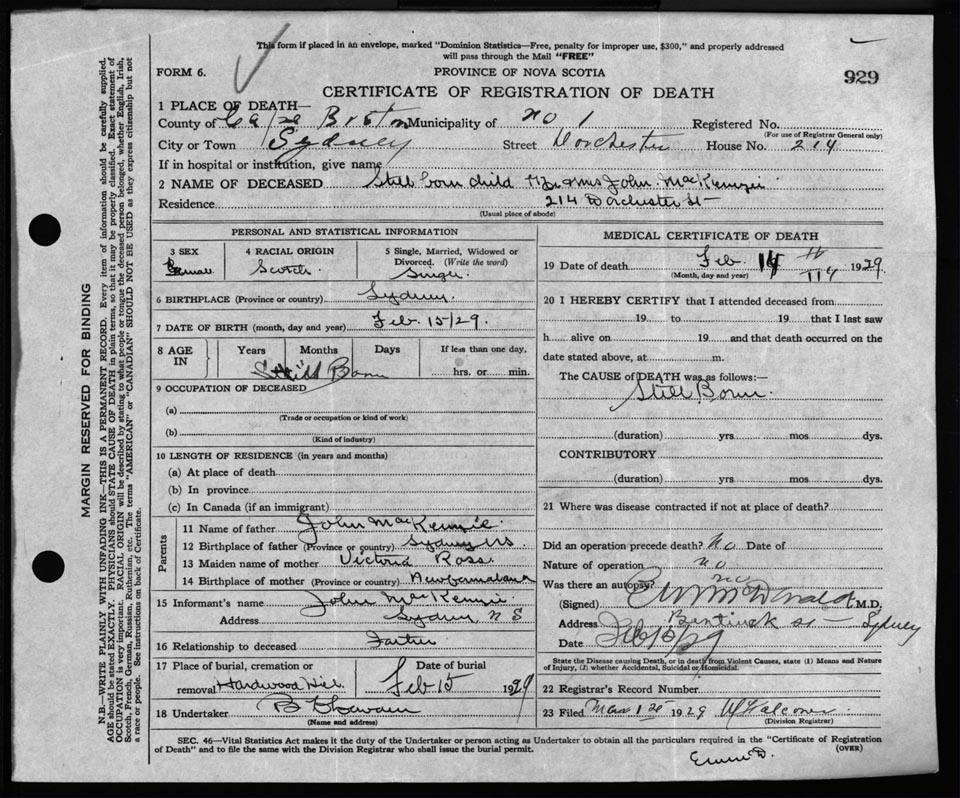 This form if placed in an envelope, marked "Dominion Statistics—Free, penalty for improper use, $300," and properly addressed
will pass through the Mail "FREE"
FORM 6.
PROVINCE OF NOVA SCOTIA
929
CERTIFICATE OF REGISTRATION OF DEATH
1 PLACE OF DEATH—
County of Cape Breton Municipality of No 1 Registered No.
(For use of Registrar General only)
City or Town Sydney Street Dorchester House No. 214
If in hospital or institution, give name
2 NAME OF DECEASED Still born child Mr & Mrs John MacKenzie
Residence 214 Dorchester St
(Usual place of abode)
PERSONAL AND STATISTICAL INFORMATION
3 SEX 4 RACIAL ORIGIN 5 Single, Married, Widowed or Divorced. (Write the word)
Female Scotch Single
6 BIRTHPLACE (Province or country) Sydney
7 DATE OF BIRTH (month, day and year) Feb. 15/29.
8 AGE IN Years Months Days If less than one day,
Still Born hrs. or min.
9 OCCUPATION OF DECEASED
(a)
(Trade or occupation or kind of work)
(b)
(Kind of industry)
10 LENGTH OF RESIDENCE (in years and months)
(a) At place of death
(b) In province
(c) In Canada (if an immigrant)
Parents
11 Name of father John MacKenzie
12 Birthplace of father (Province or country) Sydney NS
13 Maiden name of mother Victoria Ross
14 Birthplace of mother (Province or country)
15 Informant's name John MacKenzie
Address Sydney N S
16 Relationship to deceased Father
17 Place of burial, cremation or removal Hardwood Hill
Date of burial Feb 15 1929
18 Undertaker
(Name and address)
MEDICAL CERTIFICATE OF DEATH
19 Date of death Feb 14 1929
(Month, day and year)
20 I HEREBY CERTIFY that I attended deceased from
19 to 19 that I last saw
h alive on 19 and that death occurred on the
date stated above, at m.
The CAUSE of DEATH was as follows:—
Still Born.
(duration) yrs. mos dys.
CONTRIBUTORY
(duration) yrs mos dys.
21 Where was disease contracted if not at place of death?
Did an operation precede death? No Date of
Nature of operation no
Was there an autopsy? no
(Signed) McDonald M.D.
Address Bentinck St — Sydney
Date
State the Disease causing Death, or in death from Violent Causes, state (1) Means and Nature
of Injury, (2) whether Accidental, Suicidal or Homicidal.
22 Registrar's Record Number
23 Filed 1929
(Division Registrar)
SEC. 46—Vital Statistics Act makes it the duty of the Undertaker or person acting as Undertaker to obtain all the particulars required in the "Certificate of Registration
of Death" and to file the same with the Division Registrar who shall issue the burial permit.
(OVER)
MARGIN RESERVED FOR BINDING
N.B.—WRITE PLAINLY WITH UNFADING INK—THIS IS A PERMANENT RECORD. Every item of information should be carefully supplied.
AGE should be stated EXACTLY. PHYSICIANS should STATE CAUSE OF DEATH in plain terms, so that it may be properly classified. Exact statement of
OCCUPATION is very important. RACIAL ORIGIN will be described by stating to what people or tongue the deceased person belonged, whether English, Irish,
Scotch, French, German, Russian, Ruthenian, etc. The terms "AMERICAN" or "CANADIAN" SHOULD NOT BE USED as they express citizenship but not
a race or people. See instructions on back of Certificate.